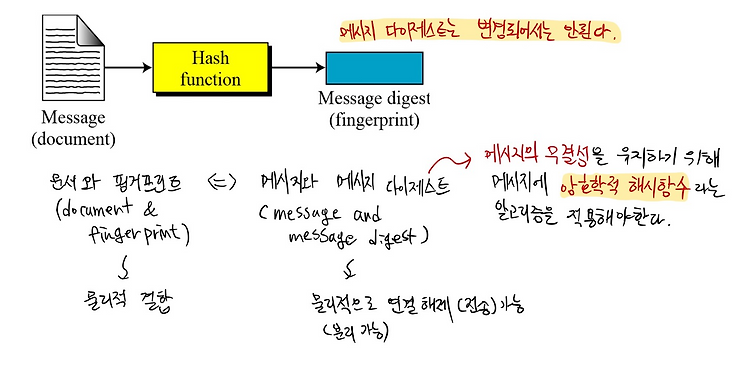 메시지 다이제스트는 변경되어서는 안된다.
Hash
function
Message
(document)
Message digest
(fingerprint)
문서와 핑거프린트
(document &
fingerprint)
물리적 결합
⇔
메시지와 메시지 다이제스트
(message and
message digest)
물리적으로 연결 해제 (전송) 가능
(분리 가능)
메시지의 무결성을 유지하기 위해
메시지에 암호학적 해시함수라는
알고리즘을 적용해야한다.